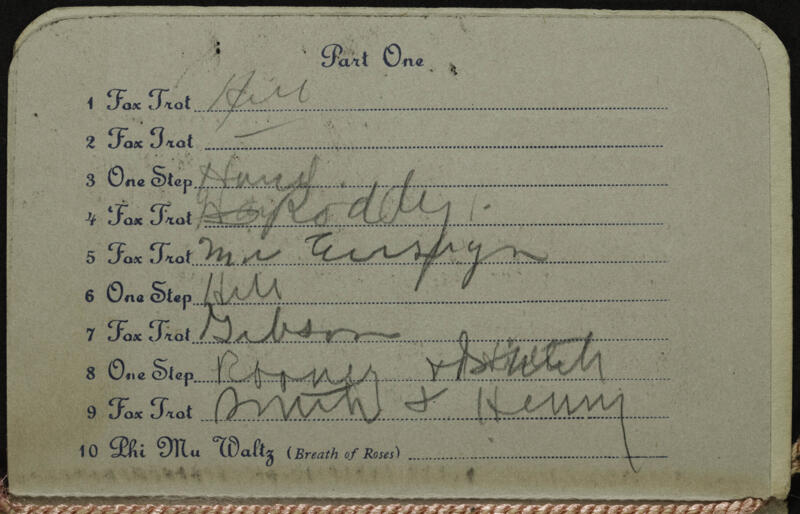 Part One
1 Fox Trot Hill
2 Fox Trot
3 One Step
4 Fox Trot Roddy
5 Fox Trot Mr
6 One Step Hill
7 Fox Trot Gibson
8 One Step Rooney &
9 Fox Trot Smith & Henny
10 Phi Mu Waltz (Breath of Roses)